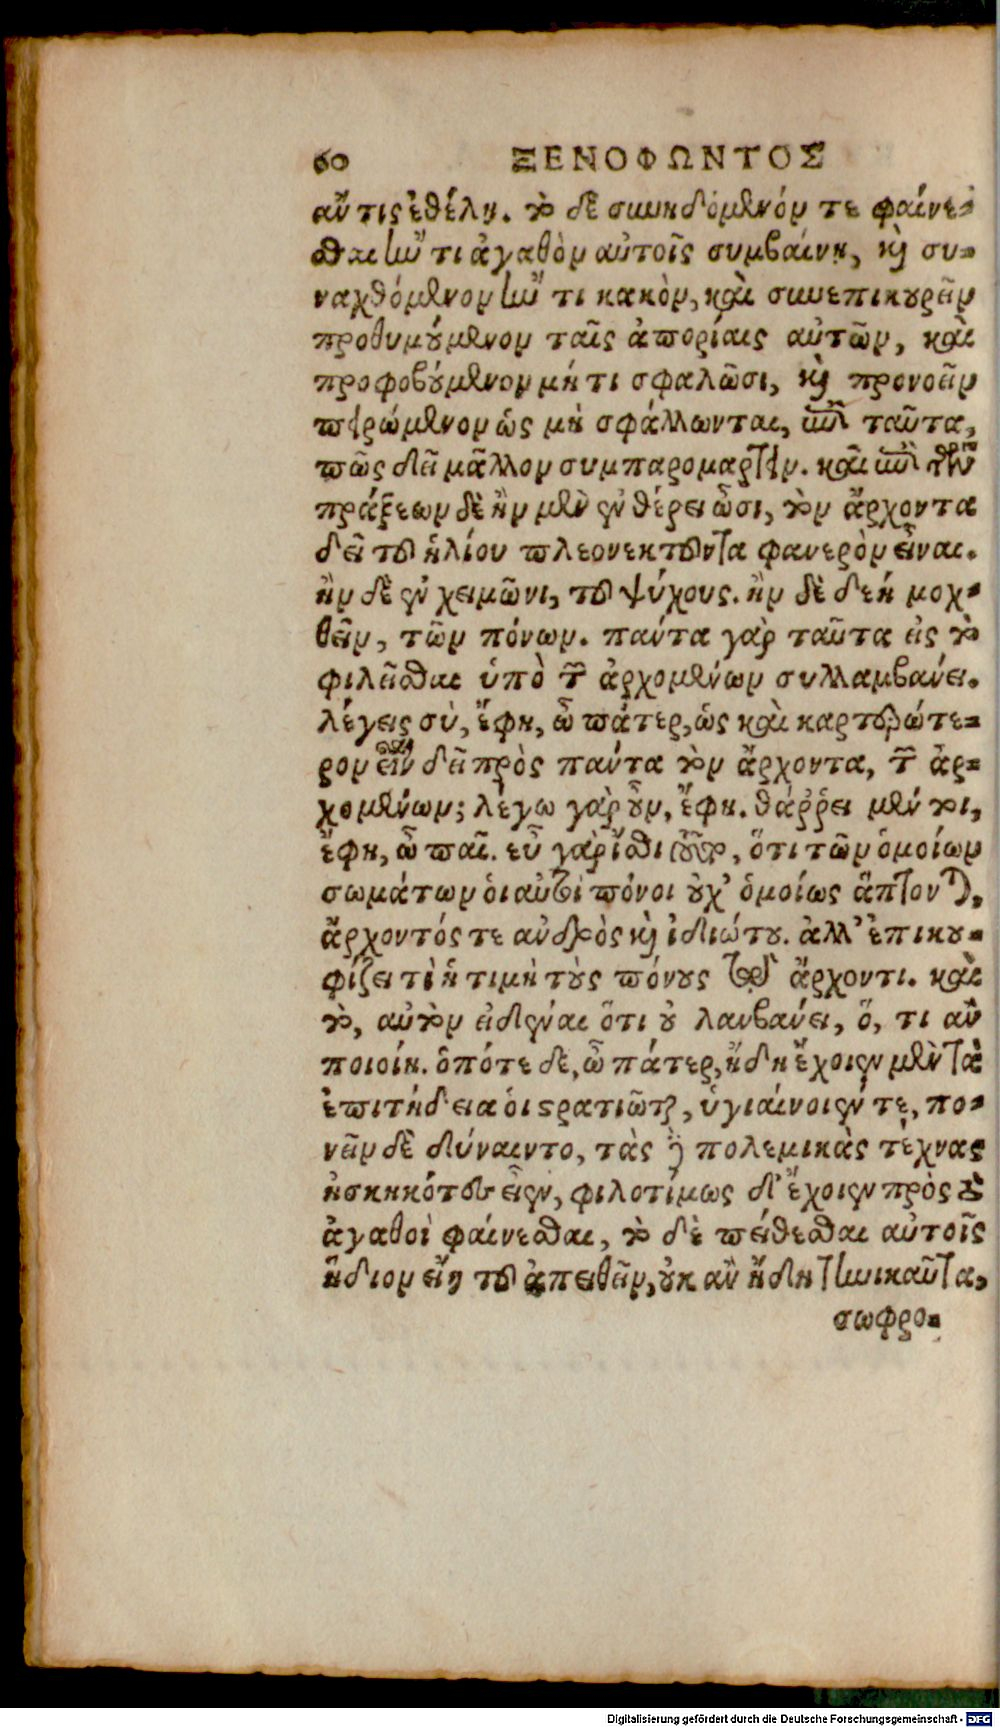 60 ΞΕΝΟΦΩΝΤΟΣ
ἄν τις ἐθέλῃ. τὸ δὲ συνηδόμενόν τε φαίνε-
σθαι ἤν τι ἀγαθὸν αὐτοῖς συμβαίνῃ, καὶ συ-
ναχθόμενον ἤν τι κακὸν, καὶ συνεπικουρεῖν
προθυμούμενον ταῖς ἀπορίαις αὐτῶν, καὶ
προφοβούμενον μή τι σφαλῶσι, καὶ προνοεῖν
πειρώμενον ὡς μὴ σφάλλωνται, ταῦτα,
πῶς δεῖ μᾶλλον συμπαρομαρτεῖν. καὶ ἐπὶ τῶν
πράξεων δὲ ἢν μὲν ἐν θέρει ὦσι, τὸν ἄρχοντα
δεῖ τοῦ ἡλίου πλεονεκτοῦντα φανερὸν εἶναι.
ἢν δὲ ἐν χειμῶνι, τοῦ ψύχους. ἢν δὲ δεή μοχ-
θεῖν, τῶν πόνων. πάντα γὰρ ταῦτα εἰς τὸ
φιλεῖσθαι ὑπὸ τῶν ἀρχομένων συλλαμβάνει.
λέγεις σὺ, ἔφη, ὦ πάτερ, ὡς καὶ καρτερώτε-
ρον εἶναι δεῖ πρὸς πάντα τὸν ἄρχοντα, τῶν ἀρ-
χομένων; λέγω γὰρ οὖν, ἔφη. θάῤῥει μέν τοι,
ἔφη, ὦ παῖ. εὖ γὰρ ἴσθι, ὅτι τῶν ὁμοίων
σωμάτων ὁι αὐτοὶ πόνοι οὐχ' ὁμοίως ἅπτονται,
ἄρχοντός τε ἀνδρὸς καὶ ἰδιώτου. ἀλλ' ἐπικου-
φίζει τὶ ἡ τιμὴ τοὺς πόνους τῷ ἄρχοντι. καὶ
τὸ, αὐτὸν εἰδέναι ὅτι οὐ λανβάνει, ὅ, τι ἂν
ποιοίη. ὁπότε δὲ, ὦ πάτερ, ἤδη ἔχοιεν μὲν τὰ
ἐπιτήδεια ὁι στρατιῶται, ὑγιαίνοιέν τε, πο-
νεῖν δὲ δύναιντο, τὰς δὲ πολεμικὰς τέχνας
ἠσκηκότες εἶεν, φιλοτίμως δ' ἔχοιεν πρὸς τὸ
ἀγαθοὶ φαίνεσθαι, τὸ δὲ πείθεσθαι αὐτοῖς
ἥδιον εἴη τοῦ ἀπειθεῖν, οὐκ ἂν ἤδη τηνικαῦτα,
σωφρο-
Digitalisierung gefördert durch die Deutsche Forschungsgemeinschaft - DFG